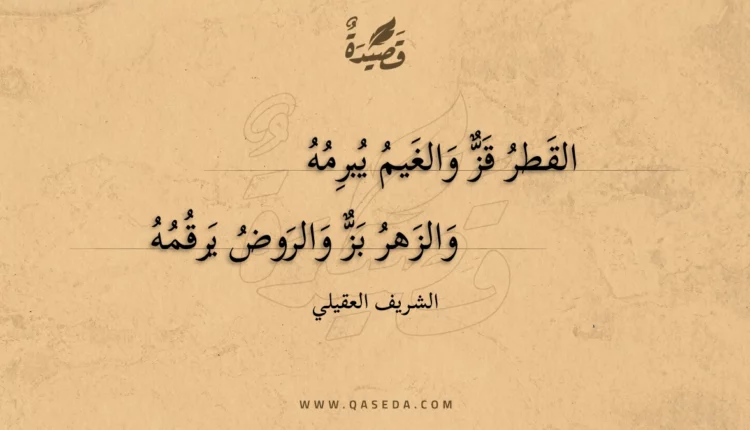 قَصِيْدَةٌ
القَطرُ قَزٌّ وَالغَيمُ يُبرِمُهُ
وَالزَهرُ بَزٌّ وَالرَوضُ يَرقُمُهُ
الشريف العقيلي
WWW.QASEDA.COM